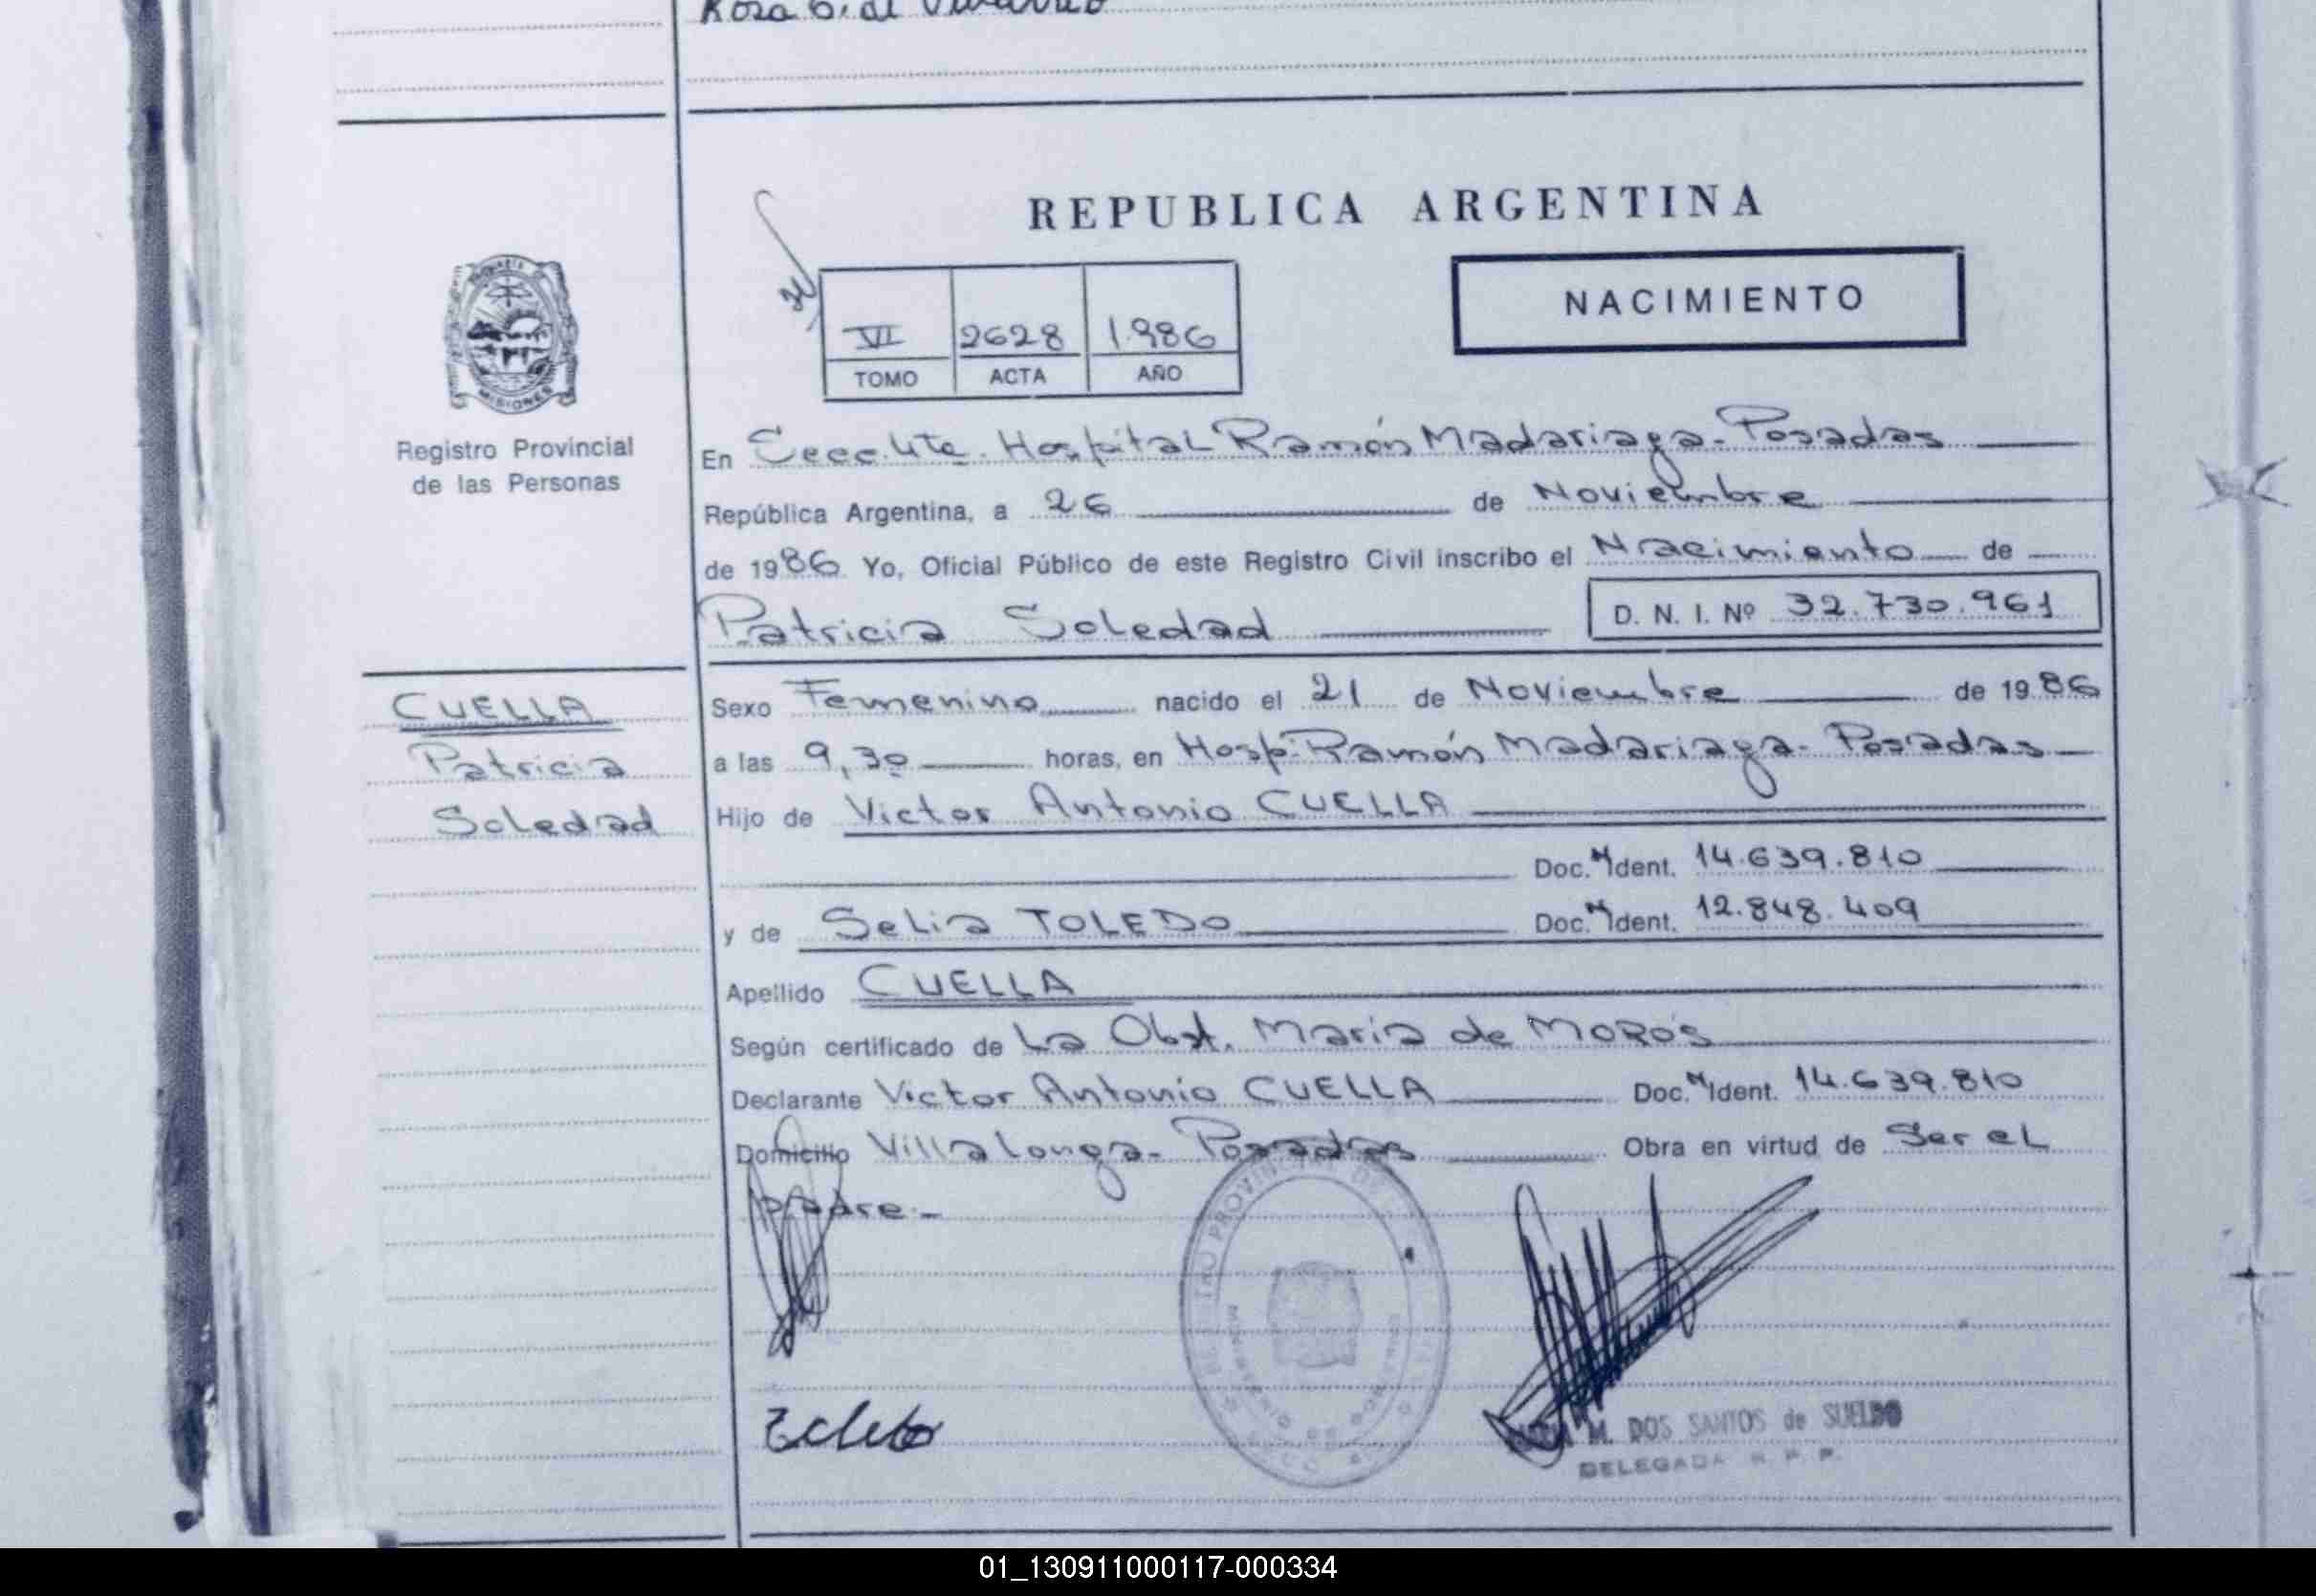 Rosa G. de
REPUBLICA ARGENTINA
NACIMIENTO
VI 2628 1.986
TOMO ACTA AÑO
MISIONES
Registro Provincial
de las Personas
En Secc. 4ta. Hospital Ramón Madariaga - Posadas
República Argentina, a 26 de Noviembre
de 1986 Yo, Oficial Público de este Registro Civil inscribo el Nacimiento de
Patricia Soledad D. N. I. Nº 32.730.961
CUELLA
Patricia
Soledad
Sexo Femenino nacido el 21 de Noviembre de 1986
a las 9,30 horas, en Hosp. Ramón Madariaga - Posadas
Hijo de Victor Antonio CUELLA
Doc. N Ident. 14.639.810
y de Selia TOLEDO Doc. N Ident. 12.848.409
Apellido CUELLA
Según certificado de La Obst. María de MOROS
Declarante Victor Antonio CUELLA Doc. N Ident. 14.639.810
Domicilio Villalonga - Posadas Obra en virtud de Ser el
padre.-
M. DOS SANTOS de SUELDO
DELEGADA R. P. P.
01_130911000117-000334